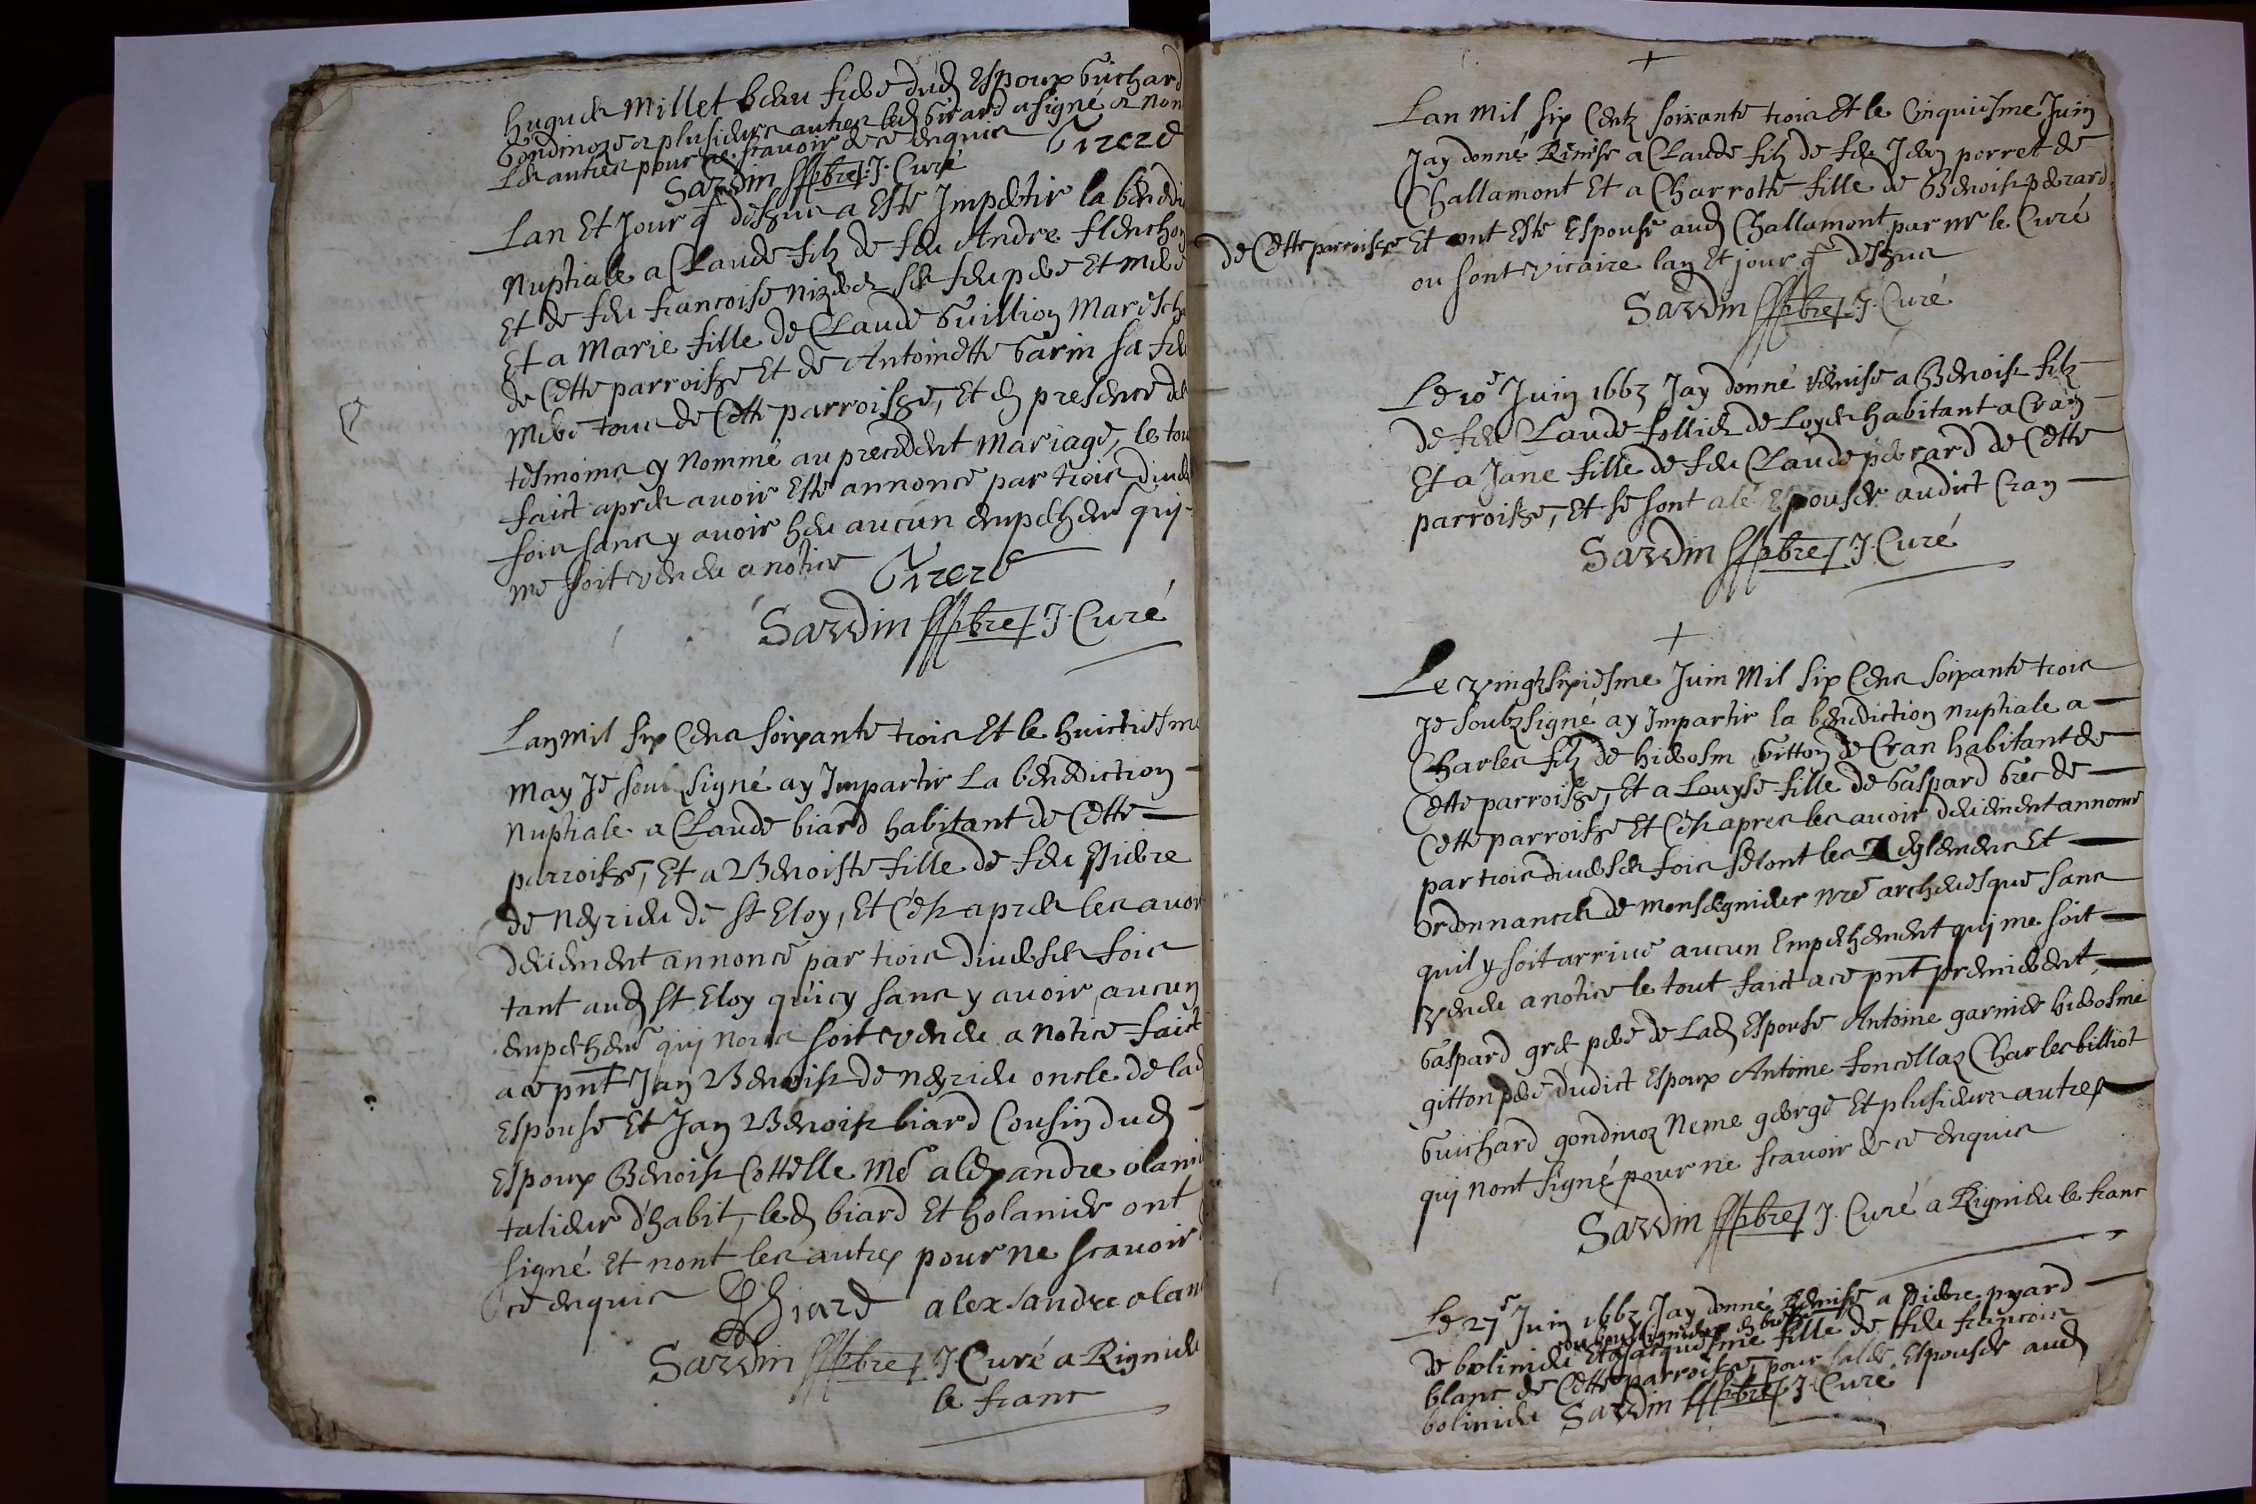 hugues Millet beau frere dud espoux Guichard
Gondinoz et plusieurs autres led Girard a signé et non
Les autres pour ne scavoir de ce enquis Girerd
Sardin pbre J. Curé
Lan Et Jour q dessus a Esté Impartir la benedi
Nuptiale a Claude filz de feu Andre
Et de feu francoise ses feu pere Et mere
Et a Marie fille de Claude Guillion Maresch
de Cette parroisse Et de Antoinette Garin sa
Mere tous de Cette parroisse, Et en presence des
tesmoins y Nommé au precedent Mariage, le tou
faict apres avoir Esté annoncé par trois
fois sans y avoir heu aucun empechem quj
me soit venu a notice Girerd
Sardin pbre J. Curé
Lan Mil six Cens soixante trois Et le huictiesme
May Je soubsigné ay Impartir La benediction
Nuptiale a Claude biard habitant de Cette
parroisse, Et a Benoiste fille de feu Pierre
de Neyrieu de St Eloy, Et Cest apres les avoir
deuement annoncé par trois diverses fois
tant aud St Eloy qu'icy sans y avoir aucun
empechem quj nous soit venu a notice faict
a ce pnt Jan Benoist de Neyrieu oncle de lad
Espouse Et Jan Benoist biard Cousin dud
Espoux Benoist Cottelle Me alexandre olani
talieur d'habit, led biard Et holanier ont
signé Et nont les autres pour ne scavoir
ce enquis Biard alexandre olan
Sardin pbre J Curé a Rignieu
le franc
Lan Mil six Centz soixante trois Et le Cinquiesme Juin
Jay donné Remise a Claude filz de feu Jean perret de
Challamont Et a Charrotte fille de Benoist perard
de Cette parroisse Et ont Esté Espousé aud Challamont par mr le Curé
ou sont vicaire lan Et jour q dessus
Sardin pbre J. Curé
Le 10e Juin 1663 Jay donné remise a Benoist filz
de feu Claude follier de Loyes habitant a Cran
Et a Jane fille de feu Claude perrard de Cette
parroisse, Et se sont alé Epouser audict Cran
Sardin pbre J. Curé
Le vingtsixiesme Juin Mil six Cens soixante trois
Je soubzsigné ay Impartir la benediction Nuptiale a
Charles filz de hierosm Gitton de Cran habitant de
Cette parroisse, Et a Louyse fille de Gaspard Gres de
Cette parroisse Et Cest apres les avoir deuement annoncé
par trois diverses fois selont les Reglemens Et
Ordonnances de monseignieur nre archevesque sans
quil y soit arrivé aucun Empechement quj me soit
venu a notice le tout faict a ce pnt premierement
Gaspard gres pere de Lad Espouse Antoine garnier hierosme
gitton pere dudict Espoux Antoine foncellaz Charles billiot
Guichard gondinoz Neme george Et plusieurs autres
quj nont signé pour ne scavoir de ce enquis
Sardin pbre J. Curé a Rignieu le franc
Le 27e Juin 1663 Jay donné Remise a Pierre pyard
de bolinieu Et a Jaquesme fille de feu francois
blanc de Cette parroisse, pour saler Espouser aud
bolinieu Sardin pbre J. Curé